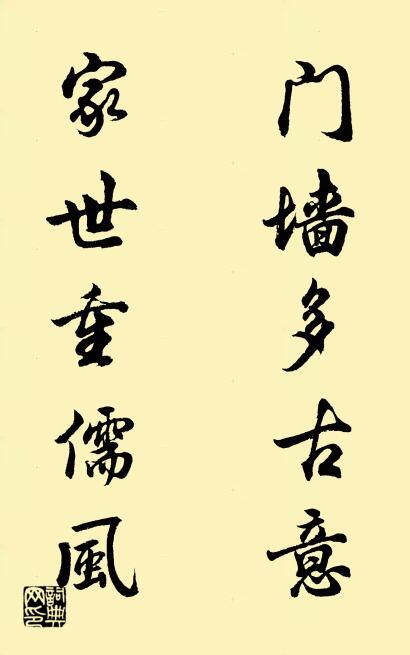 门墙多古意
家世重儒風
詞典
网印